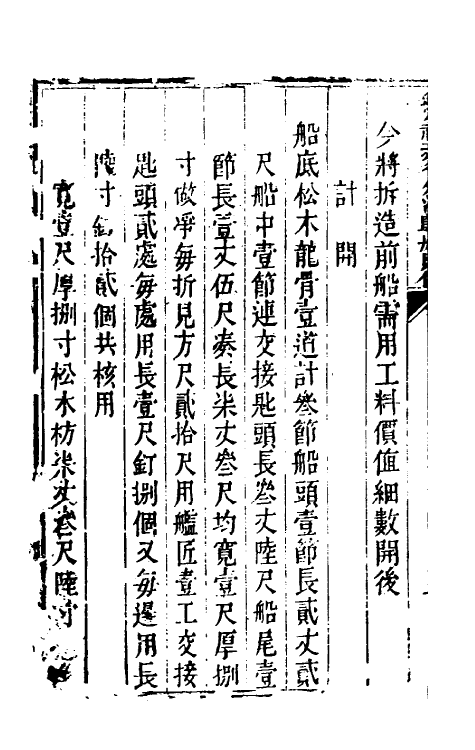 今將拆造前船需用工料價值細數開後
計開
船底松木龍骨壹道計叁節船頭壹節長貳丈貳
尺船中壹節連交接匙頭長叁丈陸尺船尾壹
節長壹丈伍尺奏長柒丈叁尺均寬壹尺厚捌
寸做凈每折見方尺貳拾尺用艦匠壹工交接
匙頭貳處每處用長壹尺釘捌個又每邊用長
陸寸釘拾貳個共核用
寬壹尺厚捌寸松木枋柒丈叁尺陸寸